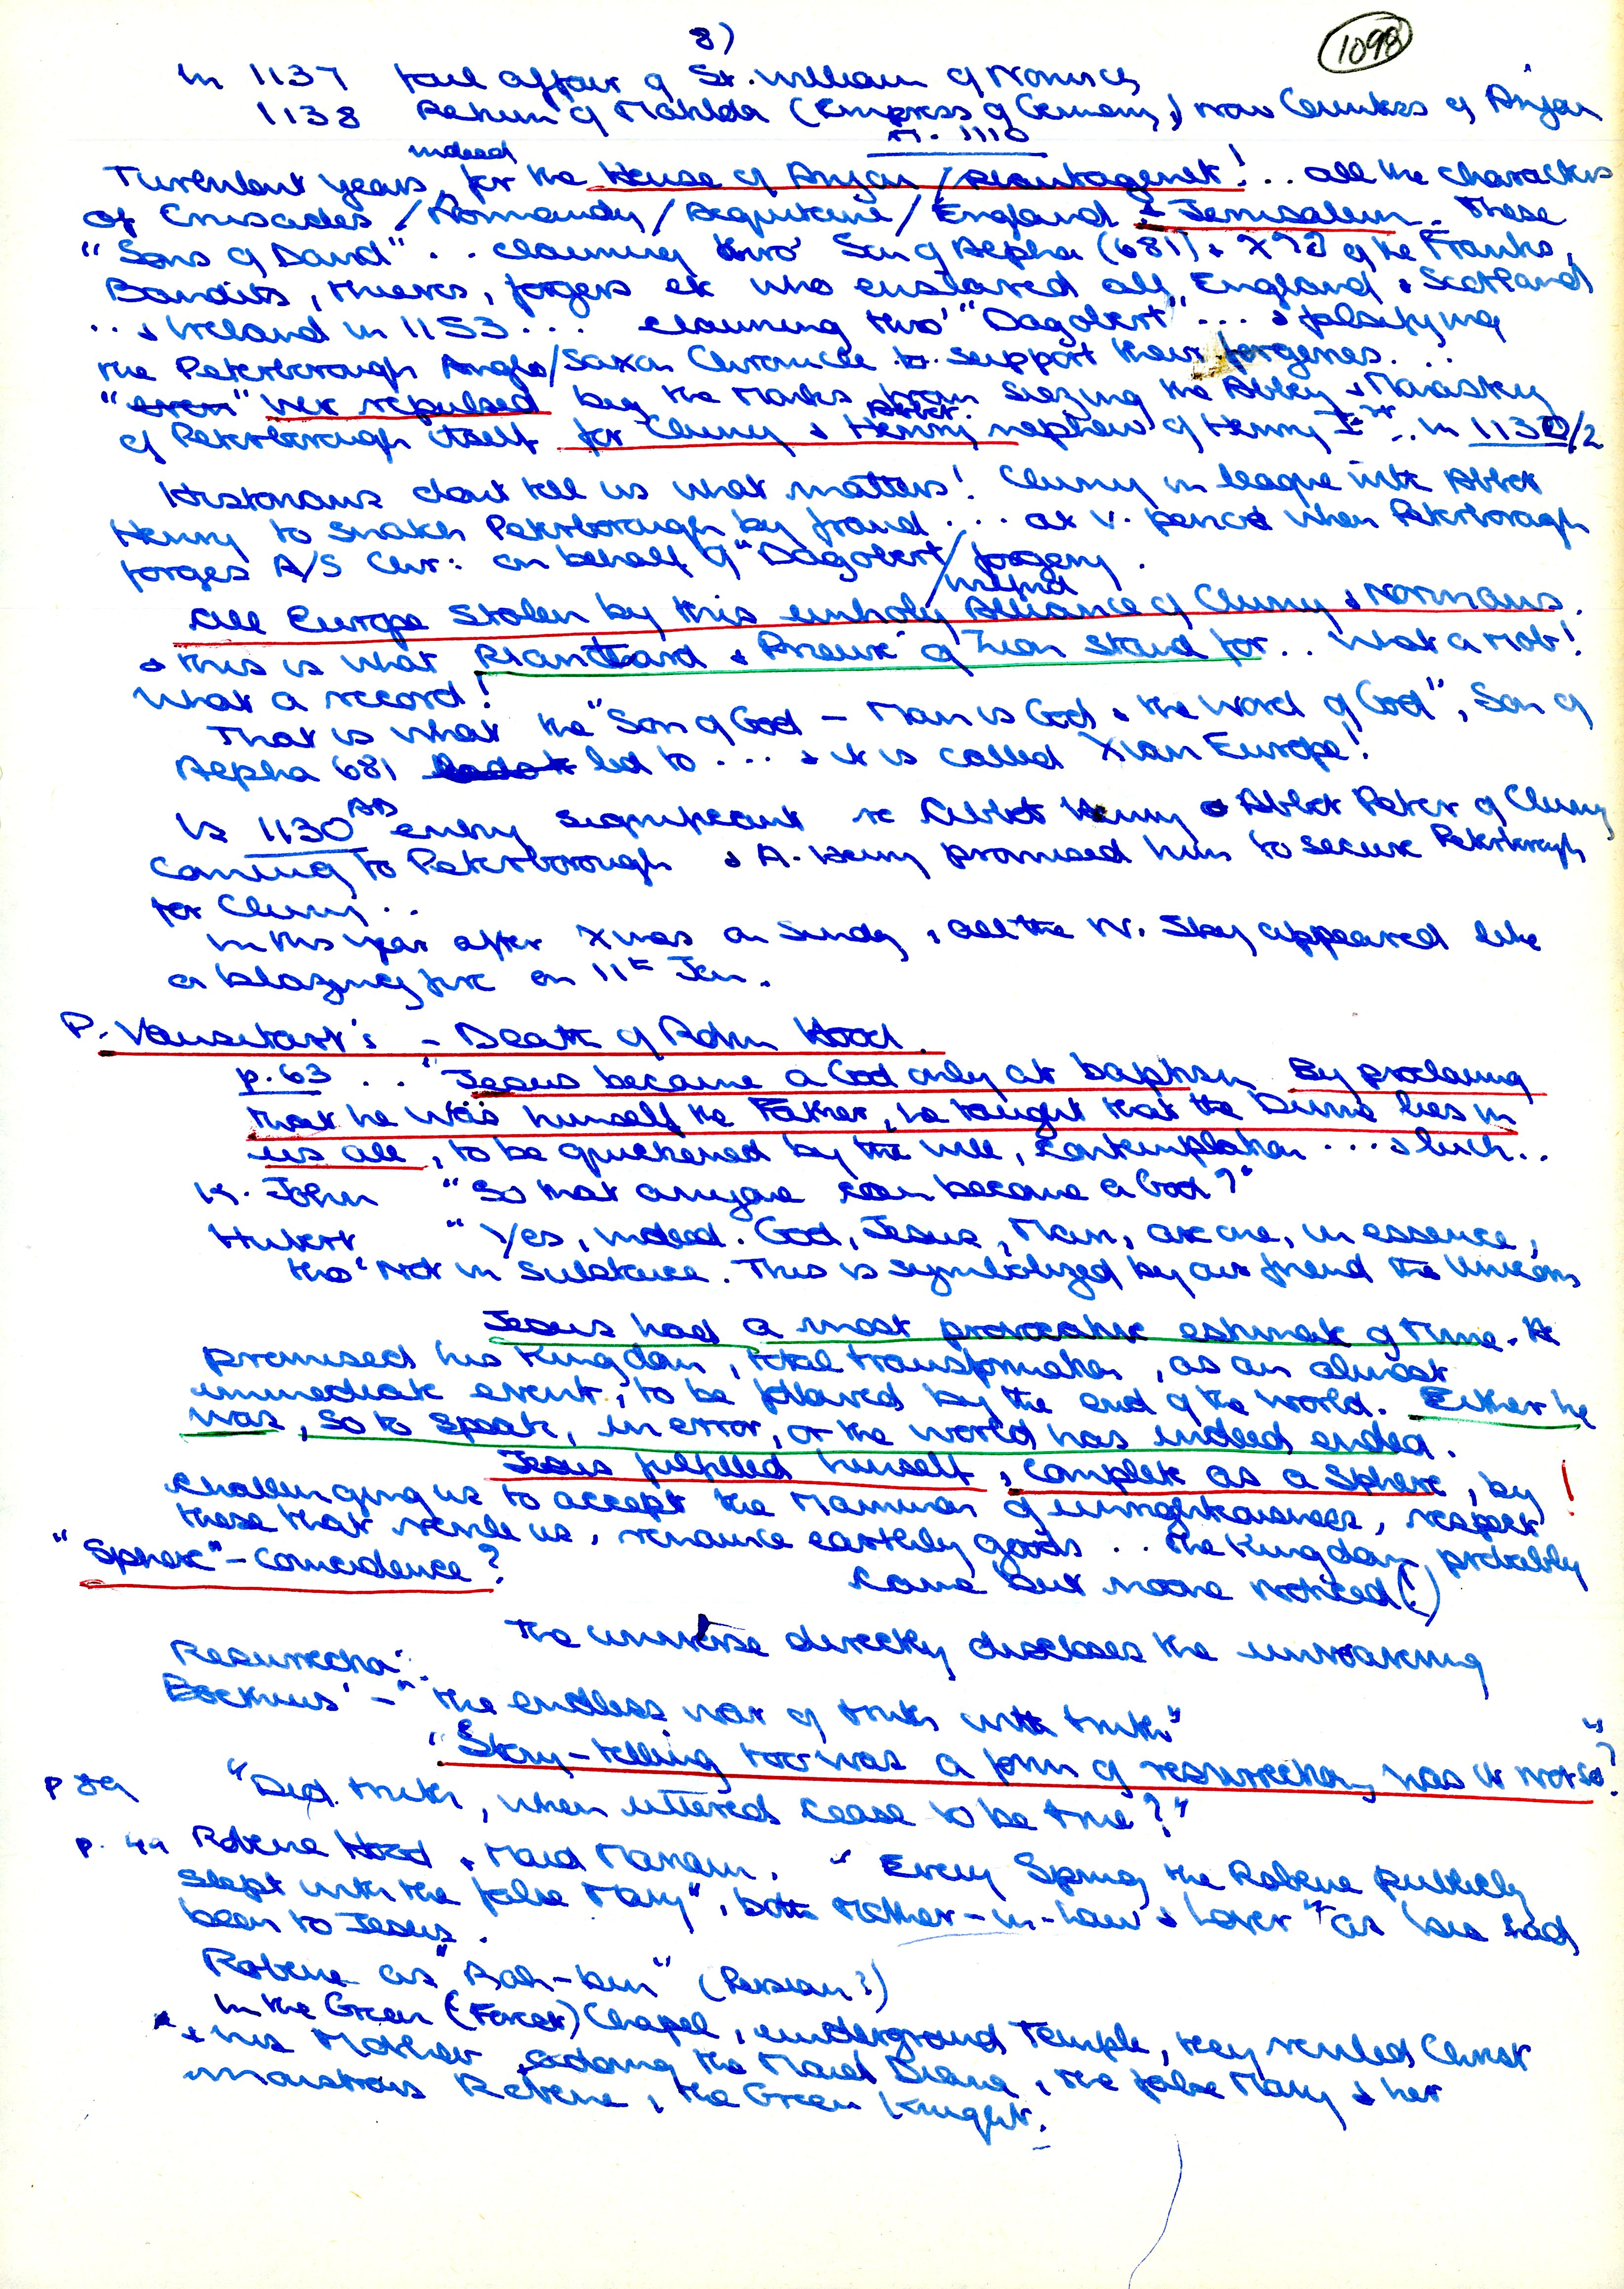 8)
1098
In 1137 foul affair of St. William of Norwich
1138 Return of Matilda (Empress of Germany) now Countess of Anjou
M. 1110
Turbulent years indeed for the House of Anjou / Plantagenet! .. all the characters
of Crusades / Normandy / Acquitaine / England & Jerusalem. These
"Sons of David" .. claiming thro' Son of Alpha (681) & of the Franks,
Bandits, thieves, forgers etc who enslaved all England & Scotland
... & Ireland in 1153 ... claiming thro' "Dagobert" ... & falsifying
the Peterborough Anglo/Saxon Chronicle to support their forgeries. ..
were repulsed by the Monks from siezing the Abbey & Monastery
of Peterborough itself for Cluny & Abbot Henry nephew of Henry Ist .. in 1130/2
Historians dont tell us what matters! Cluny in league with Abbot
Henry to snatch Peterborough by fraud ... at v. period when Peterborough
forges A/S Chr: on behalf of "Dagobert / forgery.
All Europe stolen by this unholy Alliance of Cluny & Normans.
& this is what Plantard & Prieuré of Zion stand for .. what a mob!
What a record!
That is what the "Son of God – Man is God & the Word of God", Son of
Alpha 681 led to ... & it is called Xian Europe!
Is 1130 AD entry significant re Abbot Henry & Abbot Peter of Cluny
coming to Peterborough & A. Henry promised him to secure Peterborough
for Cluny ..
In this year after Xmas on Sunday, all the N. Sky appeared like
a blazing fire on 11th Jan.
P. Vansittart's – Death of Robin Hood.
p. 63 .. "Jesus became a God only at baptism By proclaiming
that he was himself the Father, he taught that the Divine lies in
us all, to be quickened by the will, contemplation ... & luck ..
K. John "So that anyone can become a God?"
Hubert "Yes, indeed. God, Jesus, Man, are one, in essence,
tho' not in substance. This is symbolized by our friend the Unicorn
Jesus had a most provocative estimate of time. He
promised his Kingdom, total transformation, as an almost
immediate event, to be followed by the end of the world. Either he
was, so to speak, in error, or the world has indeed ended.
Jesus fulfilled himself, complete as a Sphere, by !
challenging us to accept the Mammon of unrighteousness, respect
those that revile us, renounce earthly goods .. the Kingdom, probably
came but noone noticed (!)
"Sphere" – Coincidence?
The universe directly discloses the unwavering
Resurrection.
"the endless war of truth with truth"
"Story-telling too was a form of resurrection, was it not so?"
"Did truth, when uttered cease to be true?"
p. 44 Robene Hood & Maid Mariam. "Every Spring the Robene publicly
slept with the false Mary", both Mother-in-law & lover "as she had
been to Jesus.
Robene as "Rah-bin" (Persian?)
In the Green (Forest) Chapel, underground Temple, they reviled Christ
& his Mother, adoring the Maid Diana, the false Mary & her
monstrous Robene, the Green Knight.